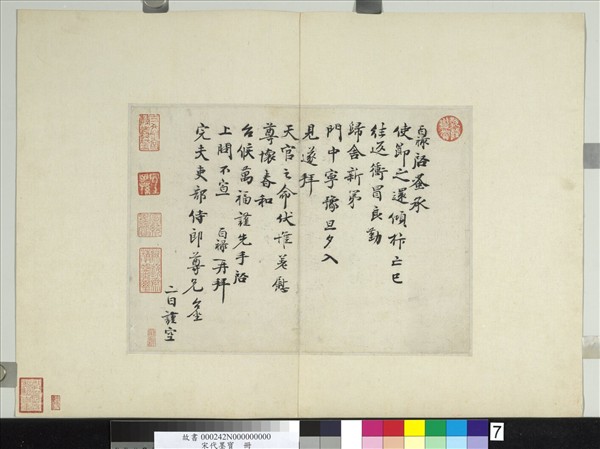 百祿啓蚤承
使節之還傾抃亡已
往返衝冒良勤
歸舍新第
門中寧豫旦夕入
見遂拜
天官之命伏惟蒸慰
尊懷春和
台候萬福謹先手啓
上問不宣 百祿再拜
完夫吏部侍郎尊兄台坐
二日謹空
故書 000242N000000000
宋代墨寶 冊
7